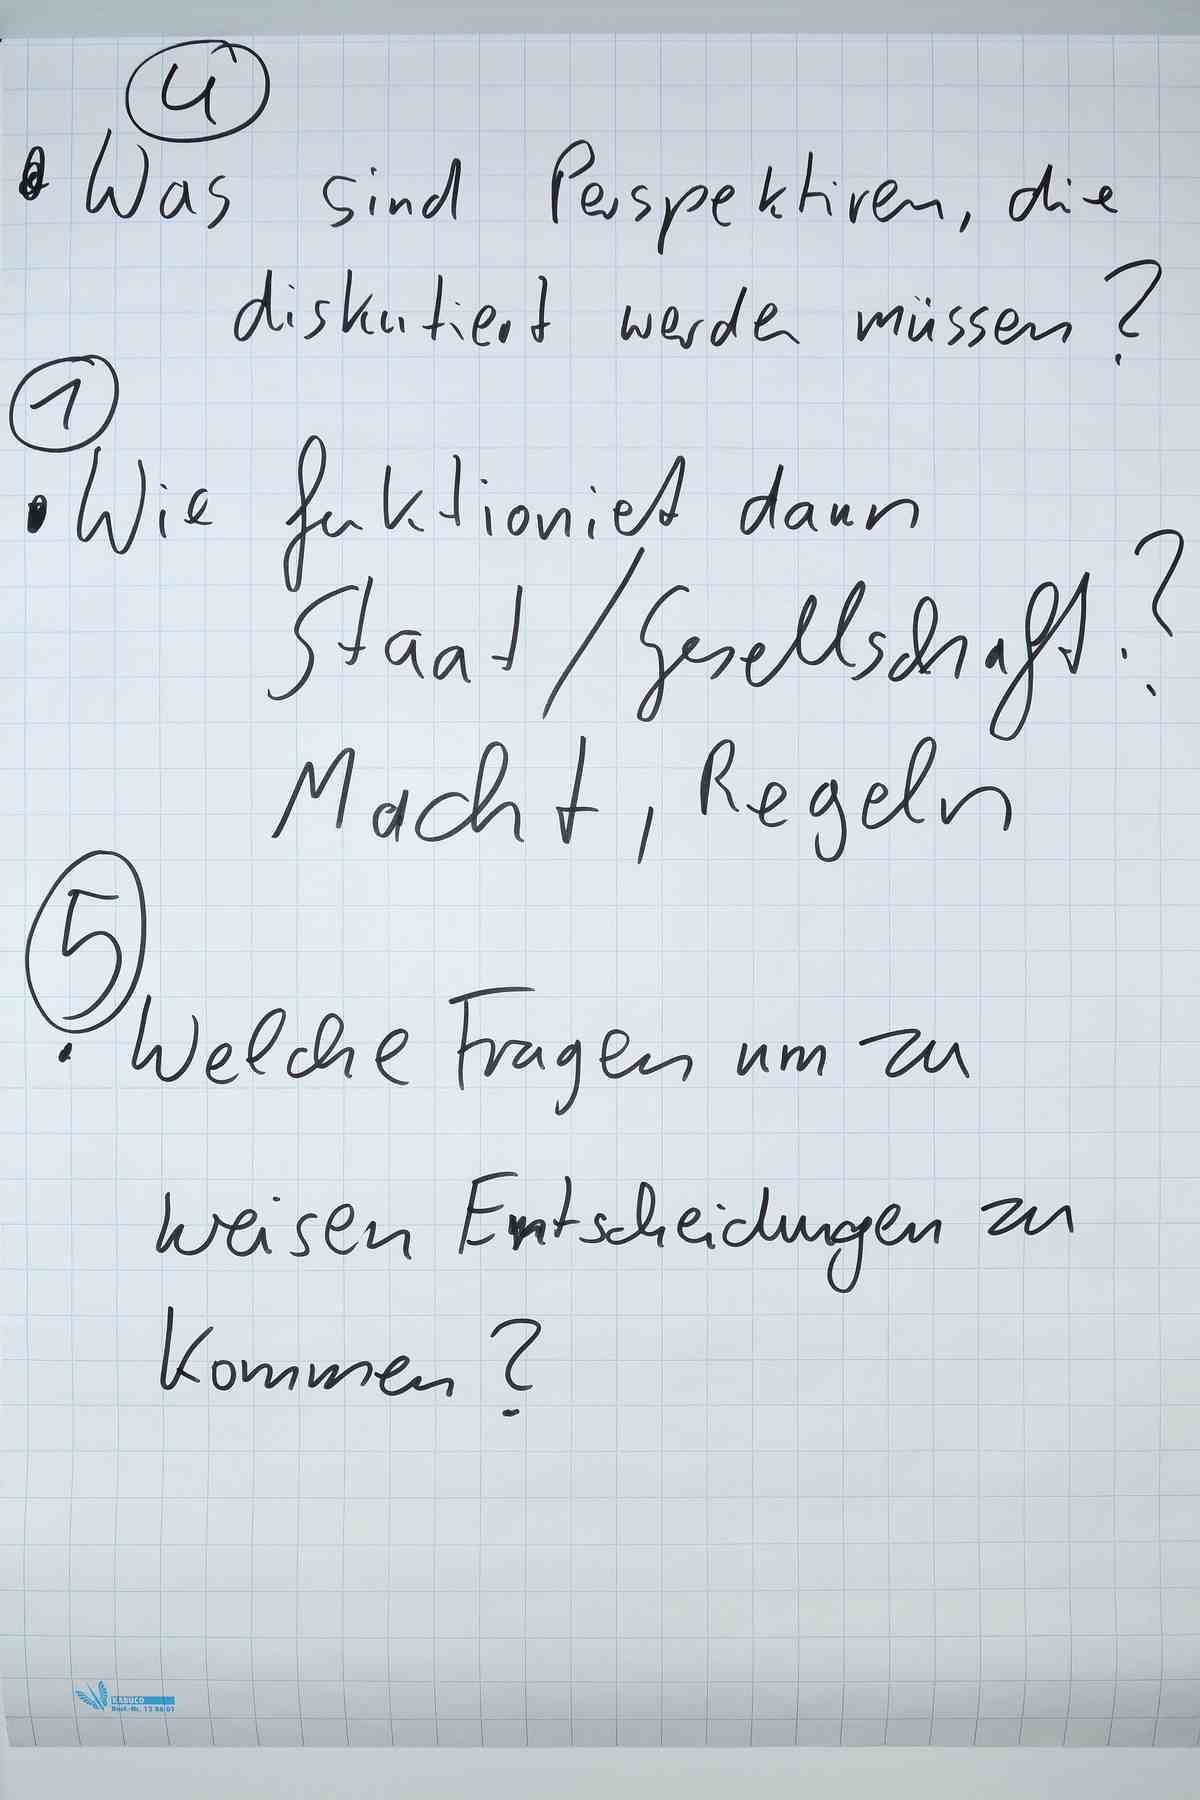 4
• Was sind Perspektiven, die
diskutiert werden müssen?
1
• Wie fuktioniert dann
Staat/Gesellschaft?
Macht, Regeln
5
• Welche Fragen um zu
weisen Entscheidungen zu
kommen?